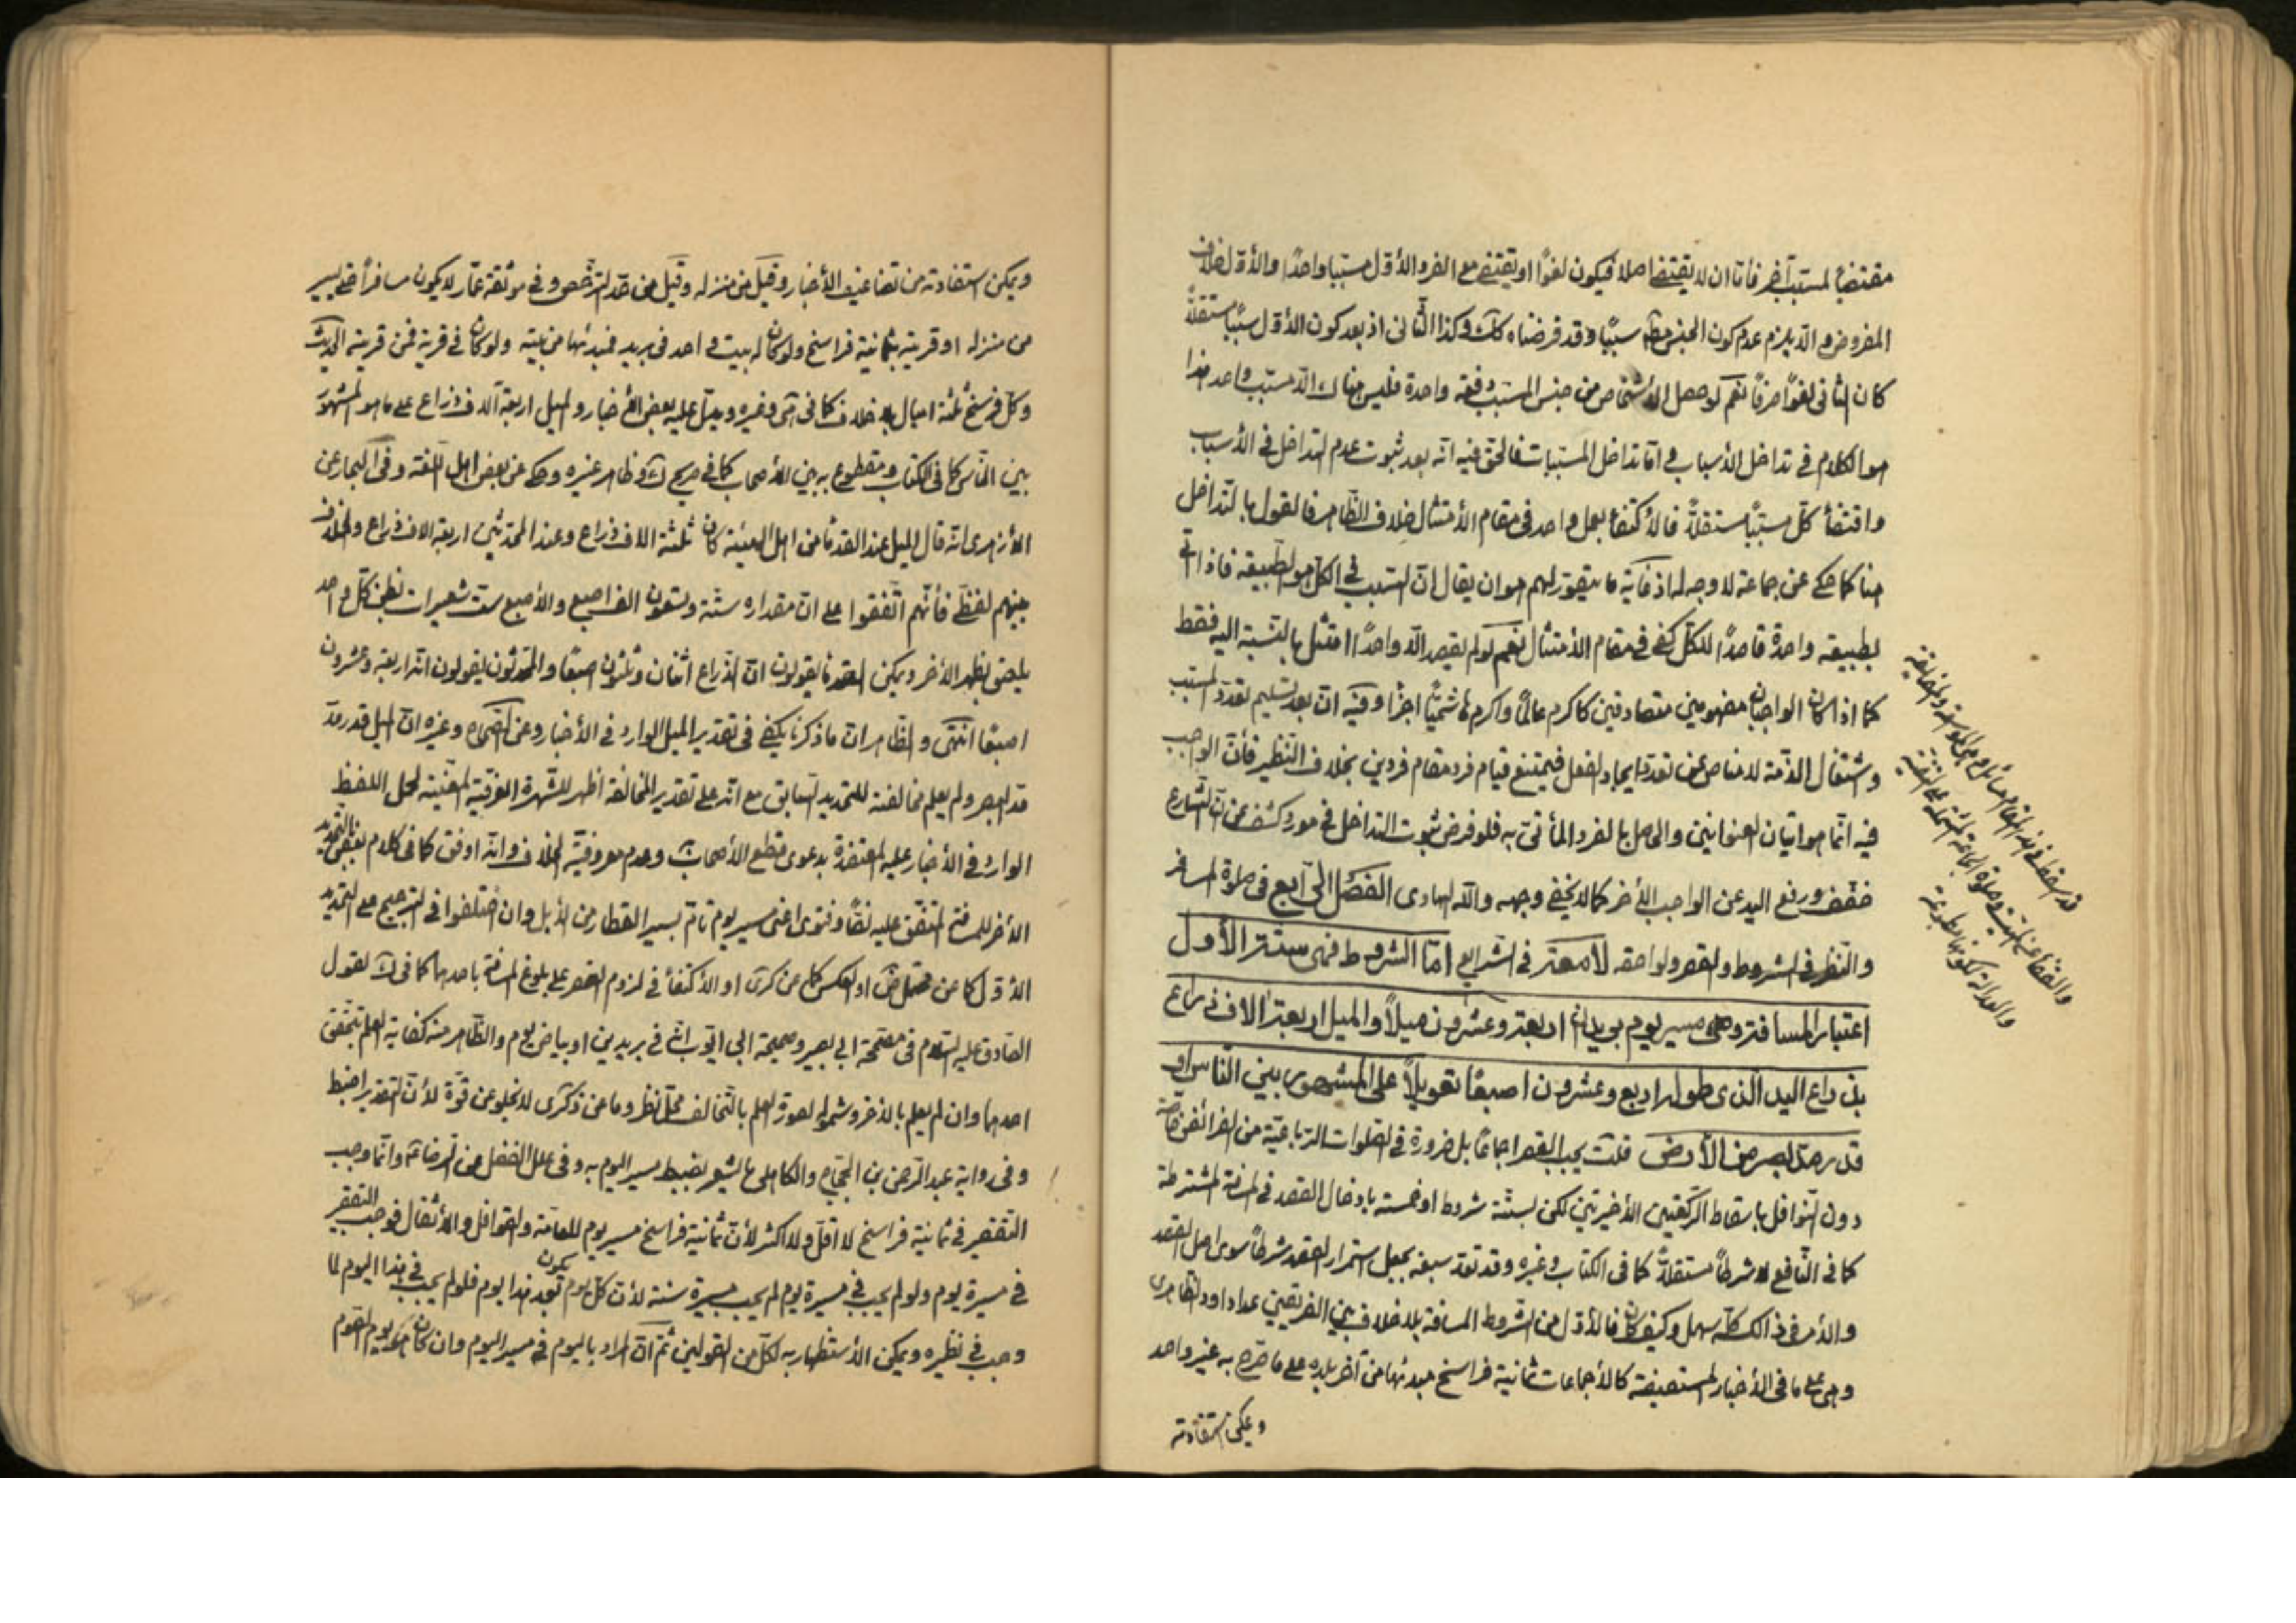 مقتضيا لمسبب آخر فأما ان لا يقتضى اصلا فيكون لغوًا او يقتضى مع الفرد الأول مسببا واحدًا والأول خلاف
المفروض والا يلزم عدم كون الجنس مط سببًا وقد فرضناه كك وكذا الثانى اذ بعد كون الأول سببًا مستقلاً
كان الثانى لغوًا صرفًا نعم لو حصل الأشخاص من جنس المسبب دفعة واحدة فليس هناك الا مسبب واحد هذا
هو الكلام فى تداخل الأسباب و اما تداخل المسببات فالحق فيه انه بعد ثبوت عدم التداخل فى الأسباب
واقتضأ كل مسببًا مستقلاً فالأكتفأ بعمل واحد فى مقام الأمتثال خلاف الظاهر فالقول بالتداخل
هنا كما حكى عن جماعة لا وجه له اذ غاية ما يتصور لهم هو ان يقال ان المسبب فى الكل هو الطبيعة فاذا اتى
بطبيعة واحدة قاصدًا للكل كفى فى مقام الأمتثال نعم لو لم يقصد الا واحدًا امتثل بالنسبة اليه فقط
كما اذا كان الواجبان مفهومين متصادقين كاكرم عالمًا واكرم هاشميًا اجزأ وفيه ان بعد تسليم تعدد المسبب
واشتغال الذمة لا مناص عن تعدد ايجاد الفعل فيمتنع قيام فرد مقام فردين بخلاف النظير فأن الواجب
فيه انما هو اتيان العنوانين والحاصل بالفرد المأتى به فلو فرض ثبوت التداخل فى مورد كشف عن ان الشارع
خفف ورفع اليد عن الواجب الأخر كما لا يخفى وجهه والله الهادى الفصل الرابع فى صلوة المسافر
والنظر فى الشروط والقصر ولواحقه لا معتر فى الشرايع اما الشروط فهى ستة الأول
اعتبار المسافة وهى مسير يوم بريدان اربعة وعشرون ميلاً والميل اربعة الاف ذراع
بذراع اليد الذى طوله اربع وعشرون اصبعًا تعويلاً على المشهور بين الناس او
قدر مد البصر من الأرض قلت يجب القصر اجماعًا بل ضرورة فى الصلوات الرباعية من الفرائض خاصة
دون النوافل باسقاط الركعتين الأخيرتين لكن بستة شروط او خمسة بادخال القصد فى المسافة المشترطة
كما فى النافع لا شرطًا مستقلاً كما فى الكتاب وغيره وقد تعد سبعة بجعل استمرار القصد شرطًا سوى اصل القصد
والأمر فى ذالك كله سهل وكيف كان فالأول من الشروط المسافة بلا خلاف بين الفريقين عدا داود الظاهرى
وهى على ما فى الأخبار المستفيضة كالأجماعات ثمانية فراسخ مبدئها من آخر بلده على ما صرح به غير واحد
ويمكن استفادته
ويمكن استفادته من تضاعيف الأخبار وقيل من منزله وقيل من حد الترخص وفى موثقة عمار لا يكون مسافرًا حتى يسير
من منزله او قريته بثمانية فراسخ ولو كان له بيت واحد فى بريد فمبدئها من بيته ولو كان فى قرية فمن قريته الحديث
وكل فرسخ ثلثة اميال بلا خلاف كما فى هى وغيره ويدل عليه بعض الأخبار والميل اربعة آلاف ذراع على ما هو المشهور
بين الناس كما فى الكتاب ومقطوع به بين الأصحاب كما فى صريح ك وظاهر غيره وحكى عن بعض اهل اللغة وفى البحار عن
الأزهرى انه قال الميل عند القدمأ من اهل الهيئة كان ثلثة الاف ذراع وعند المحدثين اربعة الاف ذراع والخلاف
بينهم لفظى فأنهم اتفقوا على ان مقداره ستة وتسعون الف اصبع والأصبع ست شعيرات بطن كل واحد
يلصق بظهر الأخر ويمكن القدمأ يقولون ان الذراع اثنان وثلثون اصبعًا والمحدثون يقولون انه اربعة وعشرون
اصبعًا انتهى والظاهر ان ما ذكرنا يكفى فى تقدير الميل الوارد فى الأخبار وعن الصحاح وغيره ان الميل قدر مد
مد البصر ولم يعلم مخالفته للتحديد السابق مع انه على تقدير المخالفة اظهر للشهرة العرفية المعينة لحمل اللفظ
الوارد فى الأخبار عليه المعتضدة بدعوى قطع الأصحاب به وعدم معروفية الخلاف وانه اوفق كما فى كلام بعض بالتحديد
الأخر للمسافة المتفق عليه نصًا وفتوى اعنى مسير يوم تام بسير القطار من الأبل وان اختلفوا فى الترجيح على التحديد
الأول كما عن محتمل ض او العكس كما عن كرى او الأكتفأ فى لزوم القصر على بلوغ المسافة باحدهما كما فى ك لقول
الصادق عليه السلام فى مصححة ابى بصير وصحيحة ابى ايوب اثن فى بريدين او بياض يوم والظاهر منه كفاية العلم بتحقق
احدهما وان لم يعلم بالأخر وشموله لصورة العلم بالتخالف محل نظر وما عن ذكرى لا يخلو عن قوة لأن التقدير اضبط
وفى رواية عبد الرحمن بن الحجاج والكاهلى ما يشعر بضبط مسير اليوم به وفى علل الفضل عن الرضا عه وانما وجب
التقصير فى ثمانية فراسخ لا اقل ولا اكثر لأن ثمانية فراسخ مسير يوم للعامة والقوافل والأثقال فوجب التقصير
فى مسيرة يوم ولو لم يجب فى مسيرة يوم لم يجب مسيرة سنة لأن كل يوم يكون بعد هذا اليوم فلو لم يجب فى هذا اليوم لما
وجب فى نظيره ويمكن الأستظهار به لكل من القولين ثم ان المراد باليوم فى مسير اليوم وان كان هو يوم الصوم